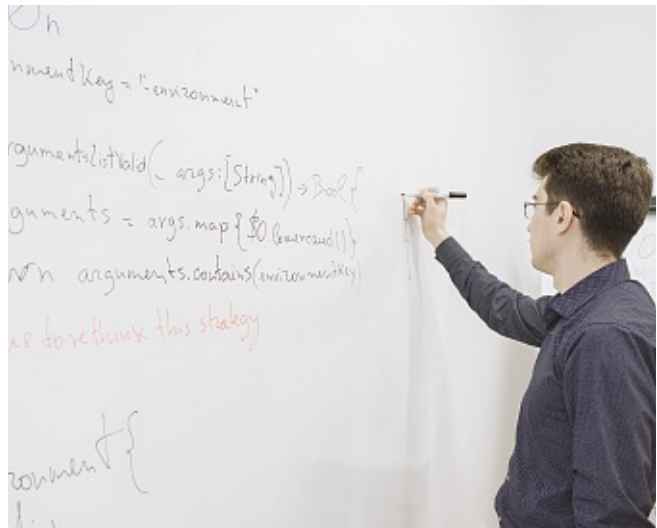 nmentKey = "-environment"
rgumentsListValid(_ args:[String]) -> Bool{
guments = args.map{$0.lowercased()}
rn arguments.contains(environmentKey)
ve to rethink this strategy
ronment{